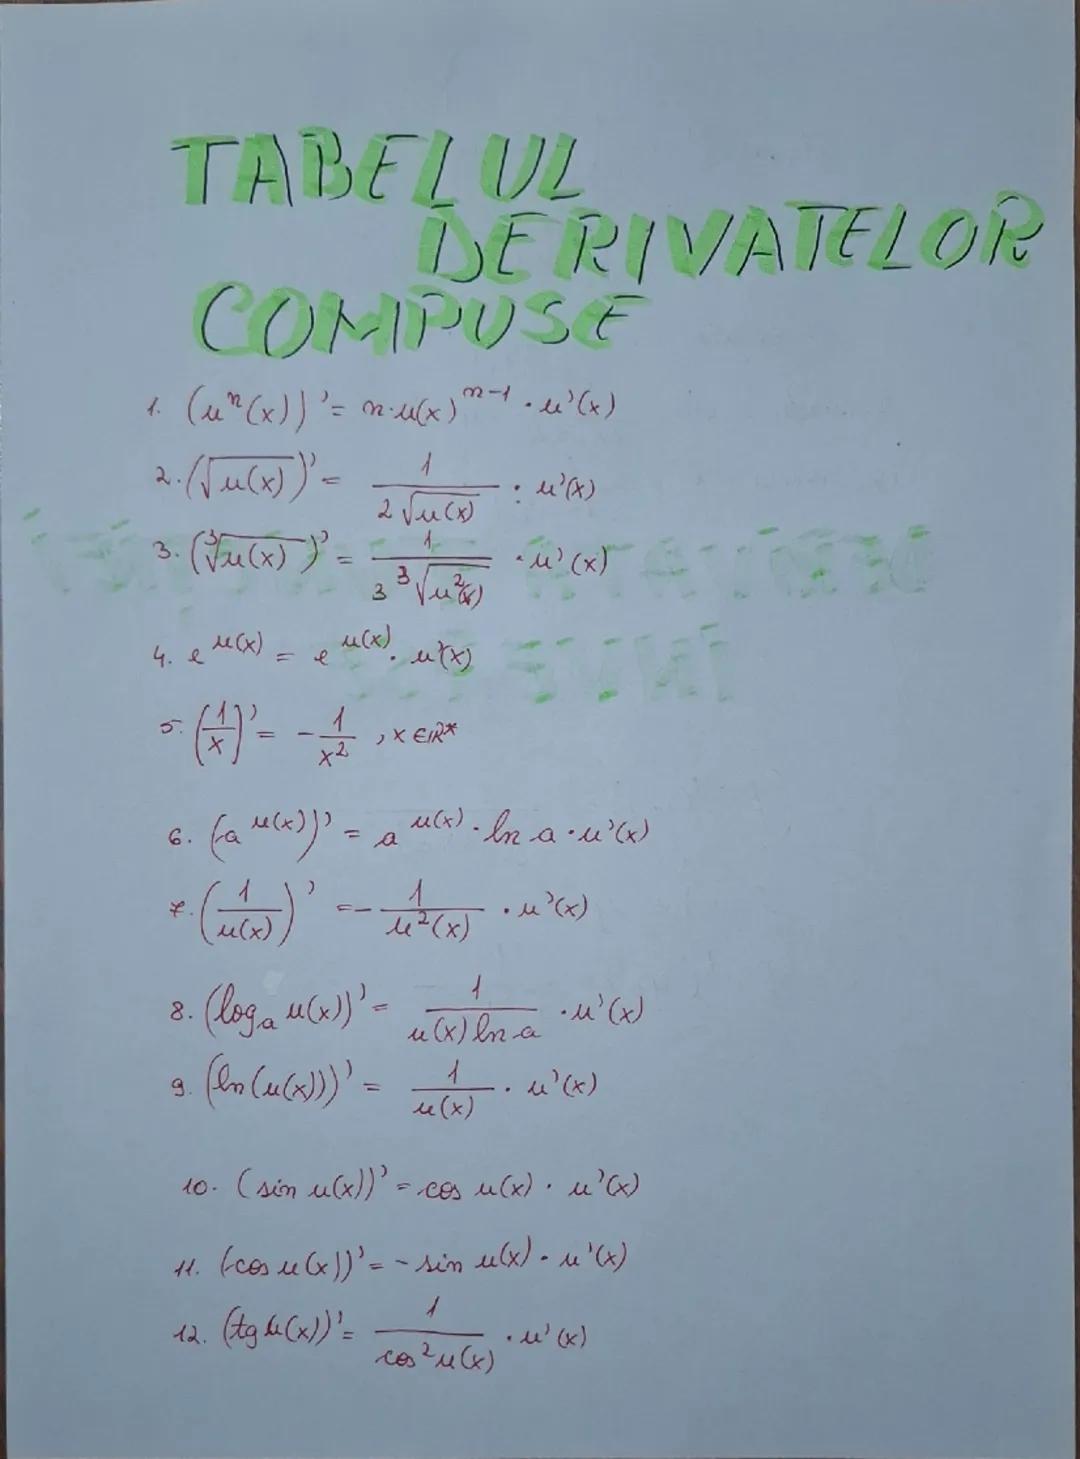 TABELUL
DERIVATELOR
COMPUSE
1. (uⁿ(x))' = n·u(x)ⁿ⁻¹ · u'(x)
2. (√u(x))' = 1/(2√u(x)) · u'(x)
3. (∛u(x))' = 1/(3∛u²(x)) · u'(x)
4. e^u(x) = e^u(x) · u'(x)
5. (1/x)' = -1/x², x ∈ ℝ*
6. (a^u(x))' = a^u(x) · ln a · u'(x)
7. (1/u(x))' = -1/u²(x) · u'(x)
8. (logₐ u(x))' = 1/(u(x) ln a) · u'(x)
9. (ln(u(x)))' = 1/u(x) · u'(x)
10. (sin u(x))' = cos u(x) · u'(x)
11. (cos u(x))' = -sin u(x) · u'(x)
12. (tg u(x))' = 1/cos² u(x) · u'(x)